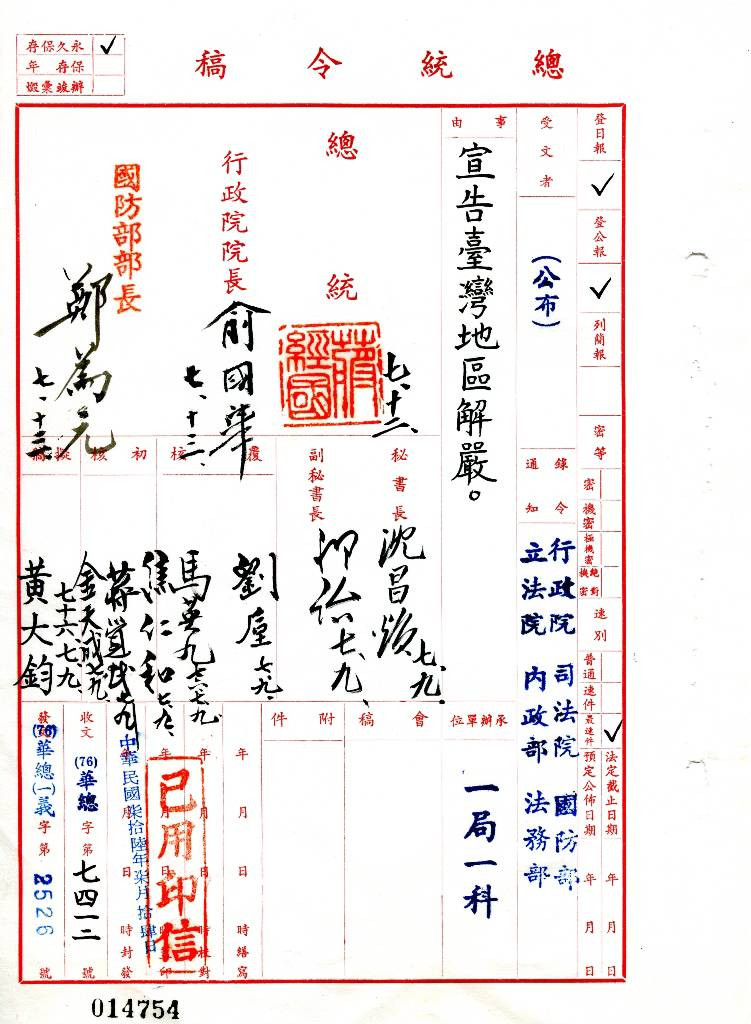 永久保存 ✓
保存 年
辦竣彙燬
總統令稿
登日報 ✓
登公報 ✓
列簡報
密等
密
機密
極機密
絕對機密
速別
普通
速件
最速件 ✓
法定截止日期 年 月 日
預定公佈日期 年 月 日
受文者
(公布)
錄令通知
行政院 司法院 國防部
立法院 內政部 法務部
事由
宣告臺灣地區解嚴。
承辦單位
一局一科
總統
蔣經國
七、十三、
行政院院長
俞國華
七、十三、
國防部部長
鄭為元
七、十三
秘書長
沈昌煥
七、九、
副秘書長
七、九、
覆核
劉垕
七、九、
馬英九
七、九、
初核
焦仁和
七、九、
擬稿
金天成
七十六、七、九、
黃大鈞
會稿
附件
年 月 日 時繕寫
年 月 日 時校對
年 月 日 時蓋印
年 月 日 時封發
已用印信
中華民國柒拾陸年柒月拾肆日
收文 (76)華總 字第 七四一二 號
發文 (76)華總(一)義 字第 2526 號
014754